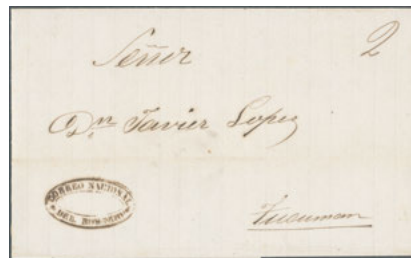 Señor 2
Dn Javier Lopez
CORREO NACIONAL
DEL ROSARIO
Tucuman